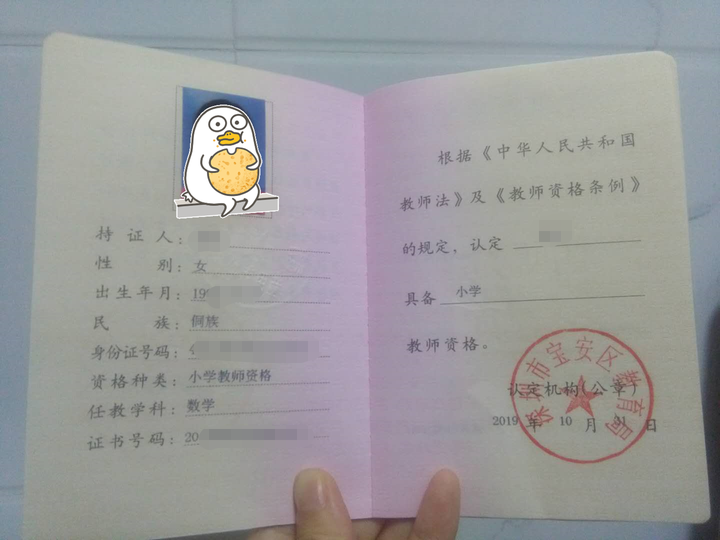 持证人：
性别：女
出生年月：19
民族：侗族
身份证号码：
资格种类：小学教师资格
任教学科：数学
证书号码：20
根据《中华人民共和国
教师法》及《教师资格条例》
的规定，认定
具备 小学
教师资格。
深圳市宝安区教育局
认定机构(公章)
2019 年 10 月 31 日